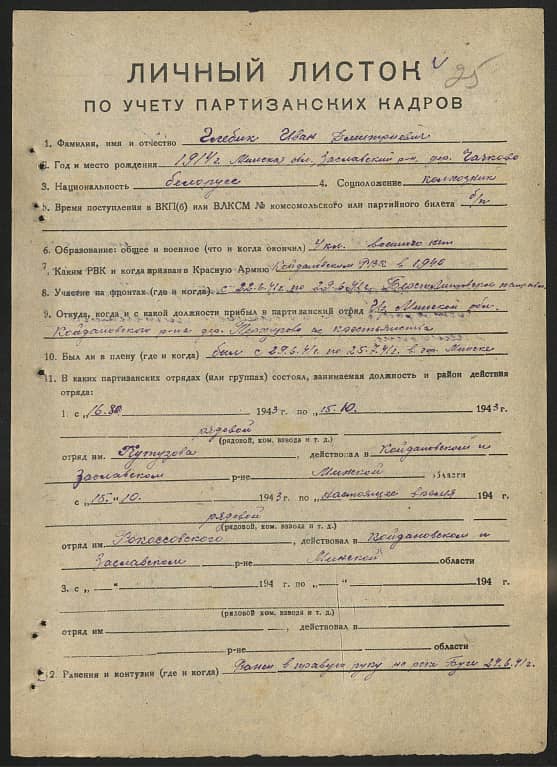 25
ЛИЧНЫЙ ЛИСТОК
ПО УЧЕТУ ПАРТИЗАНСКИХ КАДРОВ
1. Фамилия, имя и отчество Глебик Иван Дмитриевич
2. Год и место рождения 1914 г. Минская обл., Заславский р-н, дер. Чачково
3. Национальность белорусс 4. Соцположение колхозник
5. Время поступления в ВКП(б) или ВЛКСМ № комсомольского или партийного билета б/п
6. Образование: общее и военное (что и когда окончил) 4 кл. военного нет
7. Каким РВК и когда призван в Красную Армию Койдановским РВК в 1940
8. Участие на фронтах (где и когда) с 22.6.41г. по 29.6.41г.
9. Откуда, когда и с какой должности прибыл в партизанский отряд Минской обл.
Койдановского р-на дер. из крестьянства
10. Был ли в плену (где и когда) был с 29.6.41г. по 25.7.41г. в Минске
11. В каких партизанских отрядах (или группах) состоял, занимаемая должность и район действия
отряда:
1. с „16. 1943 г. по „15. 10. 1943 г.
рядовой
(рядовой, ком. взвода и т. д.)
отряд им. Кутузова, действовал в Койдановском и
Заславском р-не Минской области
с „15. " 10. 1943 г. по „настоящее время 194 г.
рядовой
(рядовой, ком. взвода и т. д.)
отряд им. Рокоссовского, действовал в Койдановском и
Заславском р-не Минской области
3. с „ " 194 г. по „ " 194 г.
(рядовой ком. взвода и т. д.)
отряд им , действовал в
р-не области
12. Ранения и контузии (где и когда) Ранен в правую руку на реке Буг 29.6.41г.